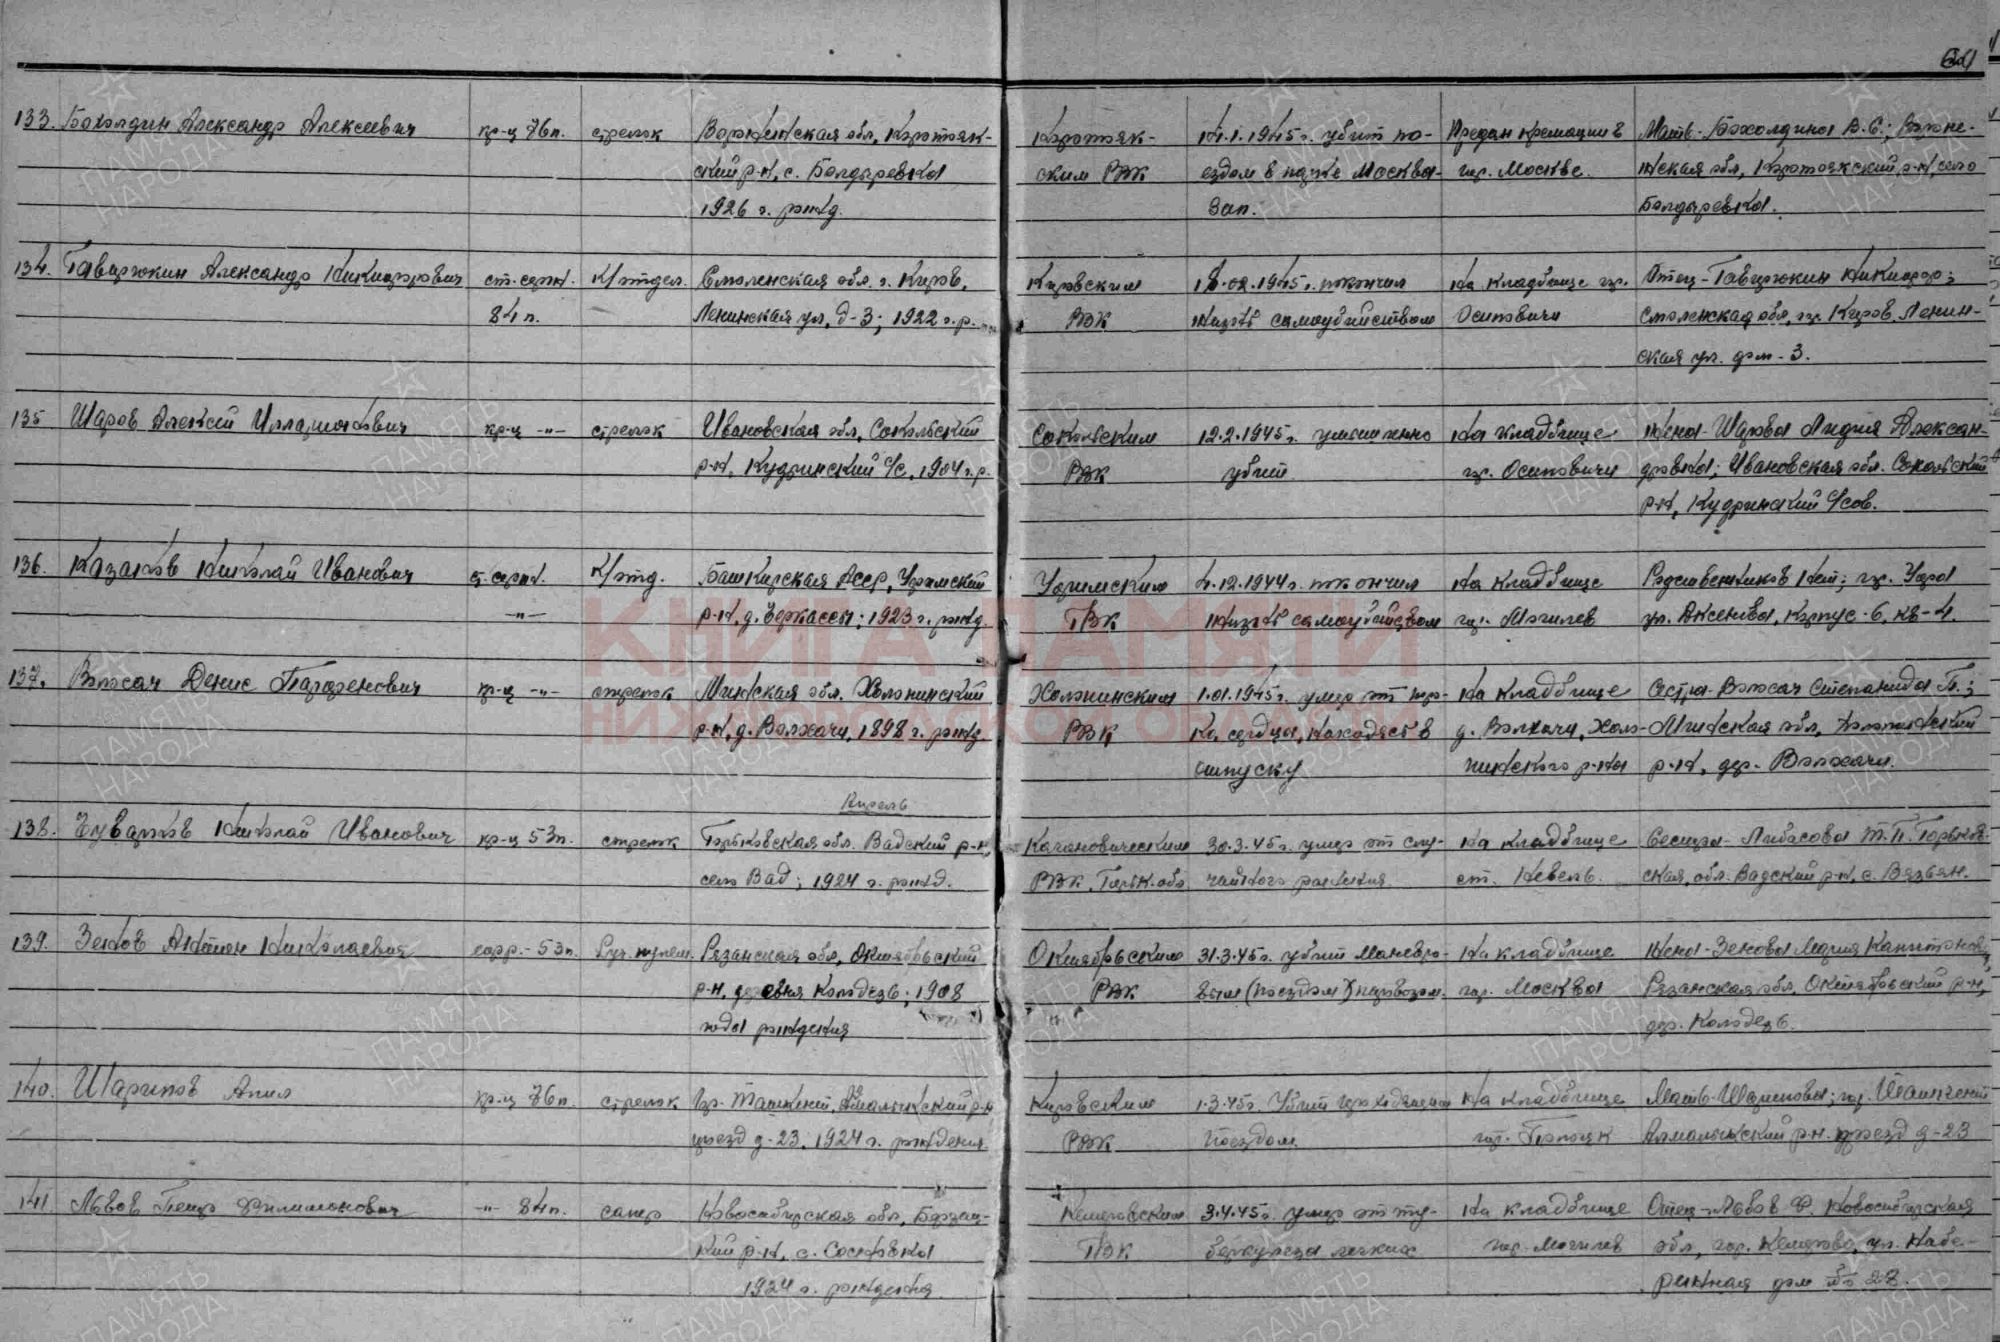 133. Бахолдин Александр Алексеевич кр-ц 76п. стрелок Воронежская обл, Коротояк- Коротояк- 14.1.1945г. убит по- Предан кремации в Мать-Бахолдина В.С.; Вороне-
ский р-н, с. Болдыревка ским РВК ездом в парке Москва- гор. Москве. жская обл, Коротоякский р-н, село
1926 г. рожд. Зап. Болдыревка.
134. Гаврюкин Александр Никифорович ст. серж. К/отдел. Смоленская обл. г. Киров, Кировским 18.02.1945г. покончил На кладбище гор. Отец-Гаврюкин Никифор;
84п. Ленинская ул, д-3; 1922 г.р. РВК жизнь самоубийством Осиповичи Смоленская обл, гор. Киров, Ленин-
ская ул. дом-3.
135 Шаров Алексей Илларионович кр-ц -"- стрелок Ивановская обл, Сокольский Сокольским 12.2.1945г. умышленно На кладбище Жена-Шарова Лидия Алексан-
р-н, Кудринский с/с, 1904 г.р. РВК убит. гор. Осиповичи дровна; Ивановская обл. Сокольский
р-н, Кудринский с/сов.
136. Казаков Николай Иванович ст. серж. К/отд. Башкирская Асср, Уфимский Уфимским 4.12.1944г. покончил На кладбище Родственников Нет; гор. Уфа
-"- р-н, д. Черкассы; 1923 г. рожд. ГВК жизнь самоубийством гор. Могилев ул. Аксенова, Корпус-6, кв-4.
137. Волосач Денис Парфенович кр-ц -"- стрелок Минская обл. Холопинский Холопинским 1.01.1945г. умер от поро- На кладбище Сестра-Волосач Степанида П.;
р-н, д. Волхачи, 1898 г. рожд. РВК ка сердца, находясь в д. Волхачи, Холо- Минская обл,
отпуску пинского р-на р-н, дер. Волхачи.
Апрель
138. Чуваков Николай Иванович кр-ц 53п. стрелок Горьковская обл. Вадский р-н, Кагановическим 30.3.45г. умер от слу- На кладбище Сестра- Либасова Т.П. Горьков-
село Вад; 1924 г. рожд. РВК, Горьк. обл чайного ранения. ст. Невель. ская, обл. Вадский р-н, с. Вязьян.
139. Зенов Антон Николаевич ефр.-53п. Руч. пулем. Рязанская обл, Октябрьский Октябрьским 31.3.45г. убит маневро- На кладбище Жена-Зенова Мария Капитоновна,
р-н, деревня Колодезь; 1908 РВК вым (поездом) паровозом. гор. Москва Рязанская обл, Октябрьский р-н,
года рождения дер. Колодезь.
140. Шарипов Апил кр-ц 76п. стрелок Гор. Ташкент, Алмалыкский р-н Кировским 1.3.45г. Убит проходящим На кладбище Мать-Шарипова; гор. Ташкент
проезд д-23, 1924 г. рождения. РВК Поездом. гор. Полоцк Алмалыкский р-н. проезд д-23
141 Львов Петр Филимонович -"- 84п. сапер Новосибирская обл, Барзас- Кемеровским 3.4.45г. умер от ту- На кладбище Отец-Львов Ф. Новосибирская
кий р-н, с. Сосновка ГВК беркулеза легких гор. Могилев обл, гор. Кемерово, ул. Набе-
1924 г. рождения режная дом № 28.
КНИГА ПАМЯТИ
НИЖЕГОРОДСКОЙ ОБЛАСТИ
ПАМЯТЬ НАРОДА